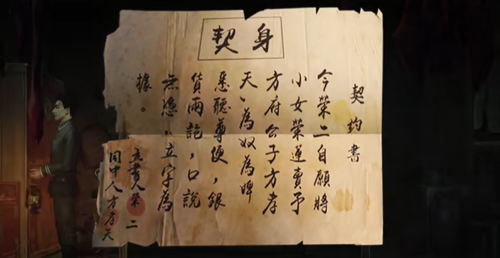 身契
契約書
今榮二自願將
小女榮蓮賣予
方府公子方孝
天，為奴為婢
悉聽尊便，銀
貨兩訖，口說
無憑，立字為
據。
立書人榮二
同中人方天